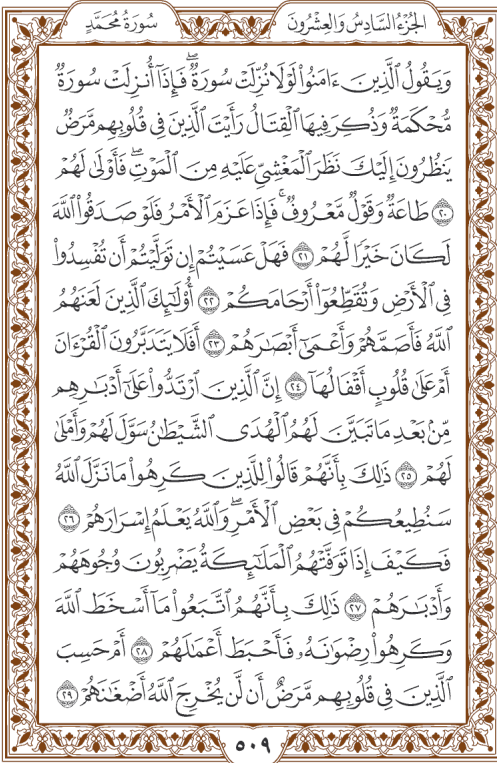 الجُزْءُ السَّادِسُ وَالعِشْرُونَ سُورَةُ مُحَمَّدٍ
وَيَقُولُ ٱلَّذِينَ ءَامَنُوا۟ لَوْلَا نُزِّلَتْ سُورَةٌ ۖ فَإِذَآ أُنزِلَتْ سُورَةٌ
مُّحْكَمَةٌ وَذُكِرَ فِيهَا ٱلْقِتَالُ رَأَيْتَ ٱلَّذِينَ فِى قُلُوبِهِم مَّرَضٌ
يَنظُرُونَ إِلَيْكَ نَظَرَ ٱلْمَغْشِىِّ عَلَيْهِ مِنَ ٱلْمَوْتِ ۖ فَأَوْلَىٰ لَهُمْ
٢٠ طَاعَةٌ وَقَوْلٌ مَّعْرُوفٌ ۚ فَإِذَا عَزَمَ ٱلْأَمْرُ فَلَوْ صَدَقُوا۟ ٱللَّهَ
لَكَانَ خَيْرًا لَّهُمْ ٢١ فَهَلْ عَسَيْتُمْ إِن تَوَلَّيْتُمْ أَن تُفْسِدُوا۟
فِى ٱلْأَرْضِ وَتُقَطِّعُوٓا۟ أَرْحَامَكُمْ ٢٢ أُو۟لَـٰٓئِكَ ٱلَّذِينَ لَعَنَهُمُ
ٱللَّهُ فَأَصَمَّهُمْ وَأَعْمَىٰٓ أَبْصَـٰرَهُمْ ٢٣ أَفَلَا يَتَدَبَّرُونَ ٱلْقُرْءَانَ
أَمْ عَلَىٰ قُلُوبٍ أَقْفَالُهَآ ٢٤ إِنَّ ٱلَّذِينَ ٱرْتَدُّوا۟ عَلَىٰٓ أَدْبَـٰرِهِم
مِّنۢ بَعْدِ مَا تَبَيَّنَ لَهُمُ ٱلْهُدَى ٱلشَّيْطَـٰنُ سَوَّلَ لَهُمْ وَأَمْلَىٰ
لَهُمْ ٢٥ ذَٰلِكَ بِأَنَّهُمْ قَالُوا۟ لِلَّذِينَ كَرِهُوا۟ مَا نَزَّلَ ٱللَّهُ
سَنُطِيعُكُمْ فِى بَعْضِ ٱلْأَمْرِ ۖ وَٱللَّهُ يَعْلَمُ إِسْرَارَهُمْ ٢٦
فَكَيْفَ إِذَا تَوَفَّتْهُمُ ٱلْمَلَـٰٓئِكَةُ يَضْرِبُونَ وُجُوهَهُمْ
وَأَدْبَـٰرَهُمْ ٢٧ ذَٰلِكَ بِأَنَّهُمُ ٱتَّبَعُوا۟ مَآ أَسْخَطَ ٱللَّهَ
وَكَرِهُوا۟ رِضْوَٰنَهُۥ فَأَحْبَطَ أَعْمَـٰلَهُمْ ٢٨ أَمْ حَسِبَ
ٱلَّذِينَ فِى قُلُوبِهِم مَّرَضٌ أَن لَّن يُخْرِجَ ٱللَّهُ أَضْغَـٰنَهُمْ ٢٩
٥٠٩